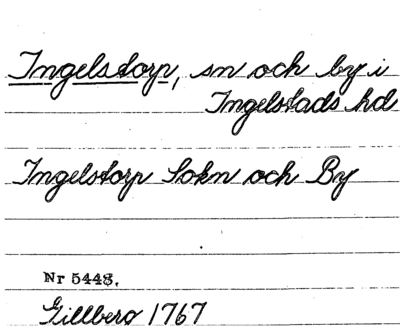 Ingelstorp, sn och by i
Ingelstads hd
Ingelstorp Sokn och By
Nr 5443.
Gillberg 1767